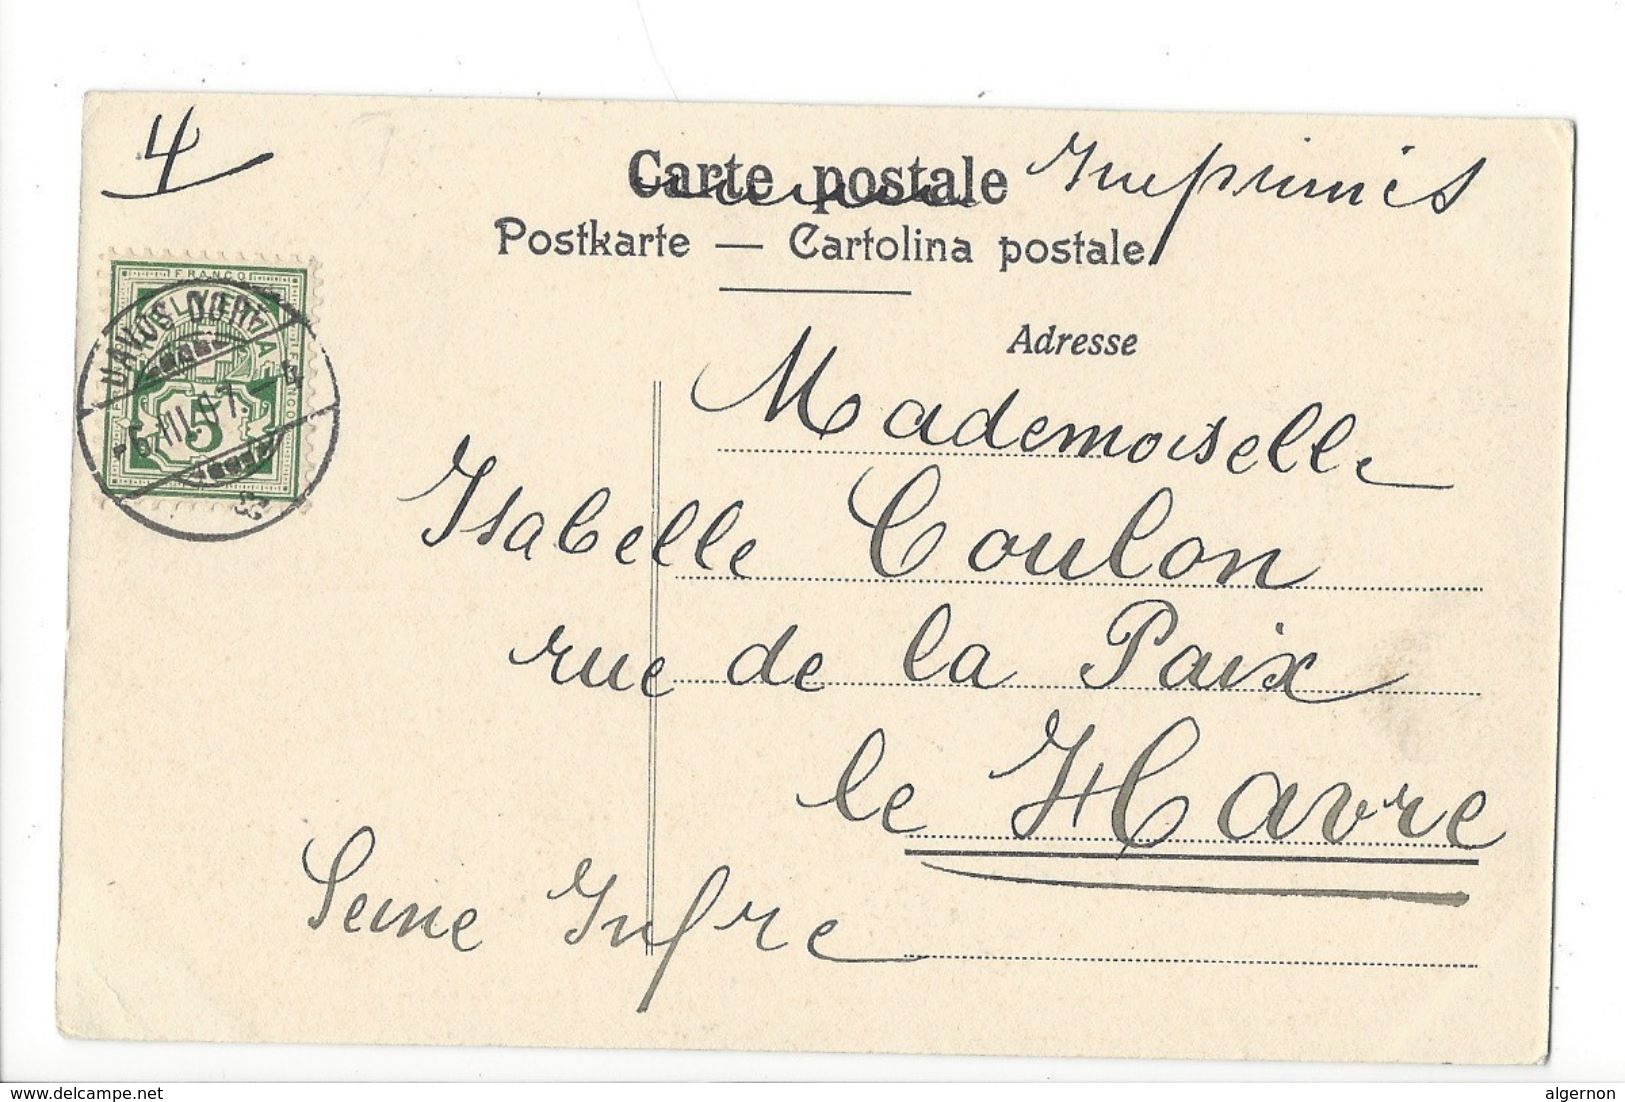 4
Carte postale Imprimés
Postkarte — Cartolina postale
FRANCO
DAVOS DORF
6. III. 07. – 4
5
Adresse
Mademoiselle
Isabelle Coulon
rue de la Paix
le Havre
Seine Infre
delcampe.net
algernon